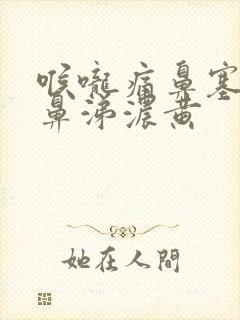 喉嚨痛鼻塞
鼻涕濃黃
她在人間